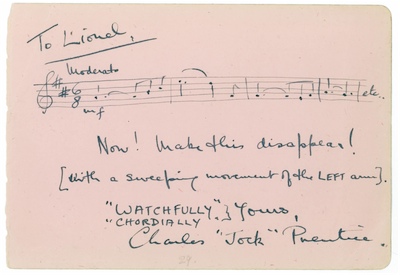 To Lionel,
Moderato
6
8
mf
etc..
Now! Make this disappear!
[with a sweeping movement of the LEFT arm].
"WATCHFULLY" } Yours,
"CHORDIALLY
Charles "Jock" Prentice.
29.